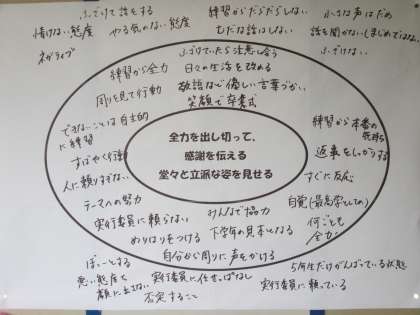 ふざけて話をする
情けない態度
やる気のない態度
練習からだらだらしない
むだな話はしない
小さな声はだめ
話を聞かない
ふざけない
ネガティブ
ふざけていたら注意し合う
練習から全力
日々の生活を改める
周りを見て行動
敬語など優しい言葉づかい
笑顔で卒業式
できないことは自主的
に練習
すばやく行動
人に頼りすぎない
全力を出し切って、
感謝を伝える
堂々と立派な姿を見せる
練習から本番の
気持ち
返事をしっかりする
すぐに反応
自覚(最高学年としての)
何ごとも
全力
テーマへの努力
実行委員に頼らない
みんなで協力
めりはりをつける
下学年の見本となる
自分から周りに声をかける
ぼーっとする
悪い態度を
顔に出さない
実行委員に任せっぱなし
否定すること
5何生だけがんばっている状態
実行委員に頼っている